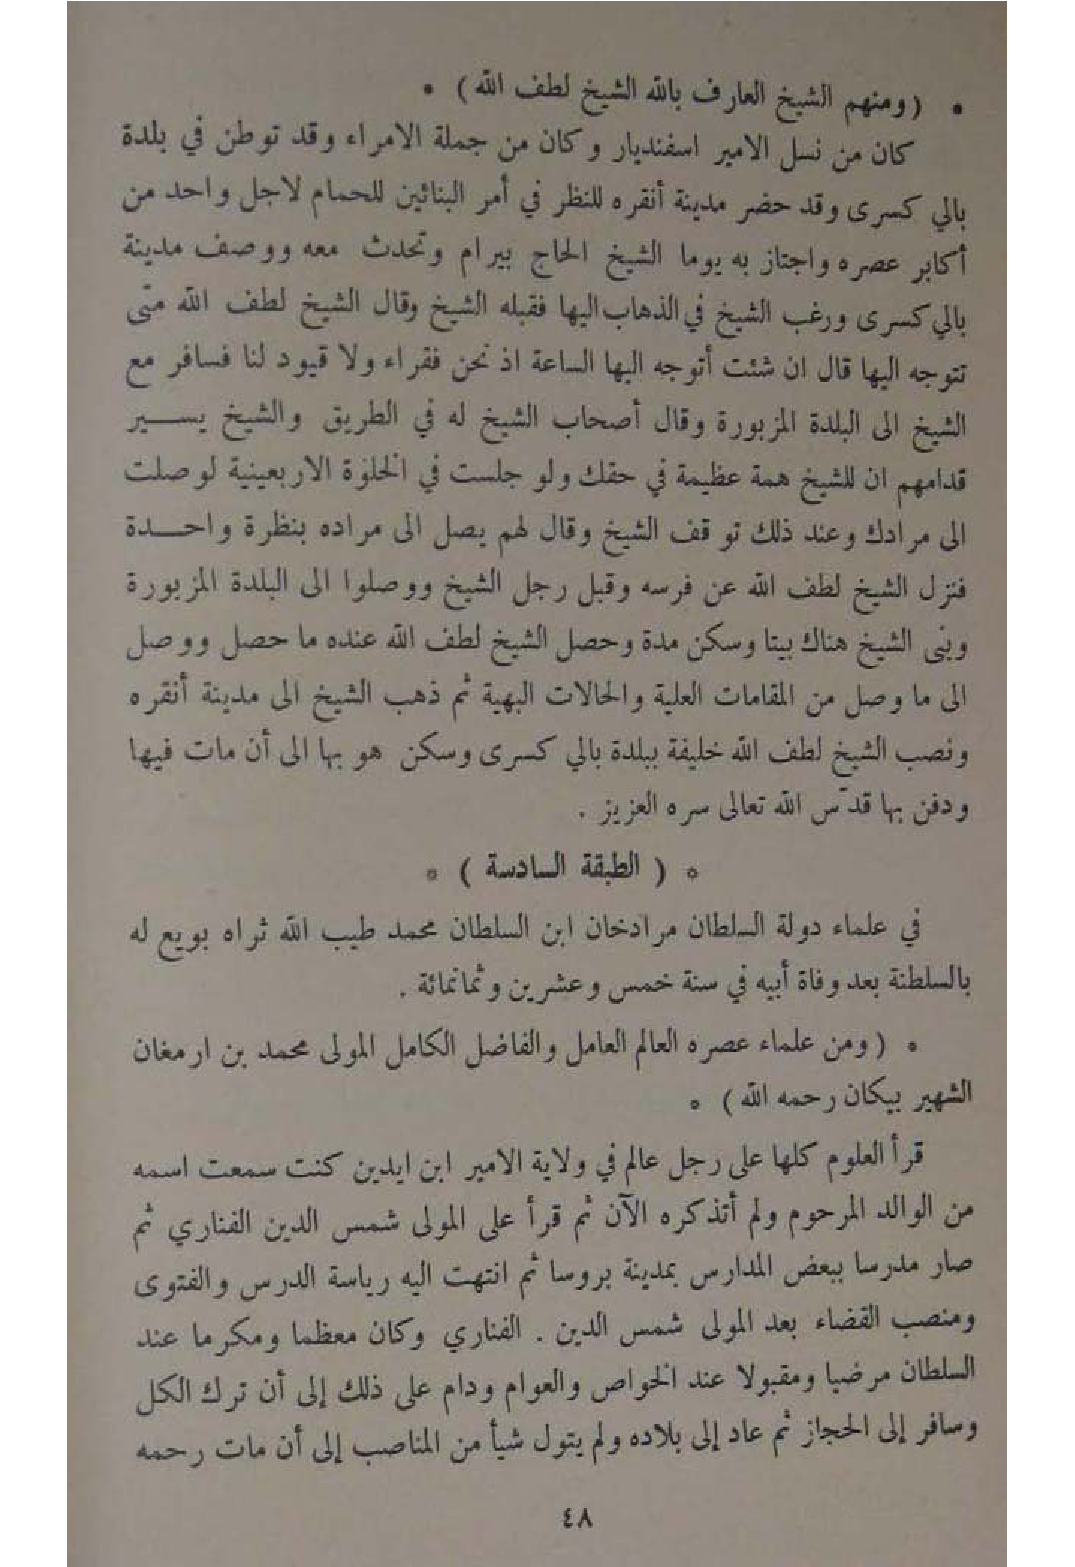 * ( ومنهم الشيخ العارف بالله الشيخ لطف الله ) *
كان من نسل الامير اسفنديار وكان من جملة الامراء وقد توطن في بلدة
بالي كسرى وقد حضر مدينة أنقره للنظر في أمر البنائين للحمام لاجل واحد من
أكابر عصره واجتاز به يوما الشيخ الحاج بيرام وتحدث معه ووصف مدينة
بالي كسرى ورغب الشيخ في الذهاب اليها فقبله الشيخ وقال الشيخ لطف الله متى
تتوجه اليها قال ان شئت أتوجه اليها الساعة اذ نحن فقراء ولا قيود لنا فسافر مع
الشيخ الى البلدة المزبورة وقال أصحاب الشيخ له في الطريق والشيخ يســير
قدامهم ان للشيخ همة عظيمة في حقك ولو جلست في الخلوة الاربعينية لوصلت
الى مرادك وعند ذلك توقف الشيخ وقال لهم يصل الى مراده بنظرة واحــدة
فنزل الشيخ لطف الله عن فرسه وقبل رجل الشيخ ووصلوا الى البلدة المزبورة
وبنى الشيخ هناك بيتا وسكن مدة وحصل الشيخ لطف الله عنده ما حصل ووصل
الى ما وصل من المقامات العلية والحالات البهية ثم ذهب الشيخ الى مدينة أنقره
ونصب الشيخ لطف الله خليفة ببلدة بالي كسرى وسكن هو بها الى أن مات فيها
ودفن بها قدّس الله تعالى سره العزيز .
* ( الطبقة السادسة ) *
في علماء دولة السلطان مرادخان ابن السلطان محمد طيب الله ثراه بويع له
بالسلطنة بعد وفاة أبيه في سنة خمس وعشرين وثمانمائة .
* ( ومن علماء عصره العالم العامل والفاضل الكامل المولى محمد بن ارمغان
الشهير بيكان رحمه الله ) *
قرأ العلوم كلها على رجل عالم في ولاية الامير ابن ايدين كنت سمعت اسمه
من الوالد المرحوم ولم أتذكره الآن ثم قرأ على المولى شمس الدين الفناري ثم
صار مدرسا ببعض المدارس بمدينة بروسا ثم انتهت اليه رياسة الدرس والفتوى
ومنصب القضاء بعد المولى شمس الدين . الفناري وكان معظما ومكرما عند
السلطان مرضيا ومقبولا عند الخواص والعوام ودام على ذلك إلى أن ترك الكل
وسافر إلى الحجاز ثم عاد إلى بلاده ولم يتول شيأ من المناصب إلى أن مات رحمه
٤٨